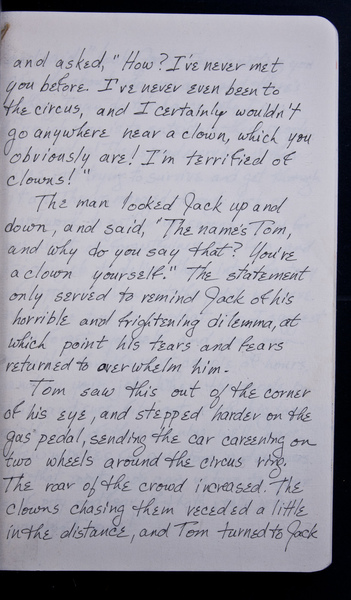 and asked, "How? I've never met
you before. I've never even been to
the circus, and I certainly wouldn't
go anywhere near a clown, which you
obviously are! I'm terrified of
clowns!"
The man looked Jack up and
down, and said, "The name's Tom,
and why do you say that? You're
a clown yourself." The statement
only served to remind Jack of his
horrible and frightening dilemma, at
which point his tears and fears
returned to overwhelm him.
Tom saw this out of the corner
of his eye, and stepped harder on the
gas pedal, sending the car careening on
two wheels around the circus ring.
The roar of the crowd increased. The
clowns chasing them receded a little
in the distance, and Tom turned to Jack